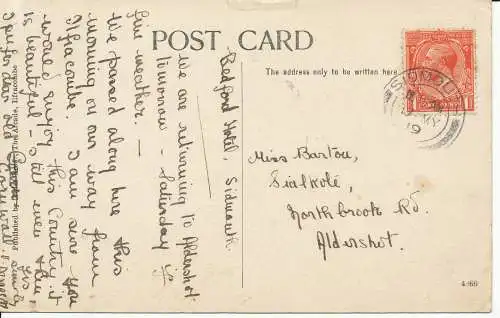 POST CARD
The address only to be written here.
Bedford Hotel, Sidmouth.
We are returning to Aldershot
tomorrow - Saturday is
fine weather. —
We passed along here this
morning on our way from
Ilfracombe. I am sure you
would enjoy this country, it
is beautiful - still even then
I pu for dear old
Cornwall.
Miss Barton,
Sialkote,
Northbrook Rd.
Aldershot.
SIDMOUTH
4/69